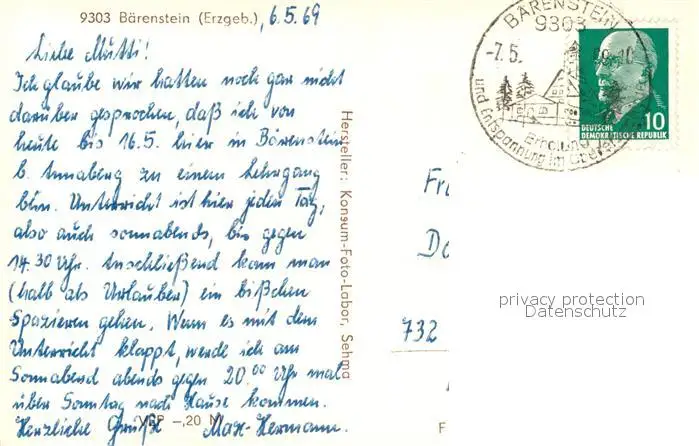 9303 Bärenstein (Erzgeb.), 6.5.69
Liebe Mutti!
Ich glaube wir hatten noch gar nicht
darüber gesprochen, daß ich von
heute bis 16.5. hier in Bärenstein
b. Annaberg zu einem Lehrgang
bin. Unterricht ist hier jeden Tag,
also auch sonnabends, bis gegen
14.30 Uhr. Anschließend kann man
(halb als Urlauber) ein bißchen
Spazieren gehen. Wenn es mit dem
Unterricht klappt, werde ich am
Sonnabend abends gegen 20.00 Uhr mal
über Sonntag nach Hause kommen.
Herzliche Grüße Max-Hermann.
VEP -,20 M
Hersteller: Konsum-Foto-Labor, Sehma
BÄRENSTEIN
9303
-7.5.
und Entspannung im
Erholung
10
DEUTSCHE
DEMOKRATISCHE REPUBLIK
Fr
Do
732
F
privacy protection
Datenschutz